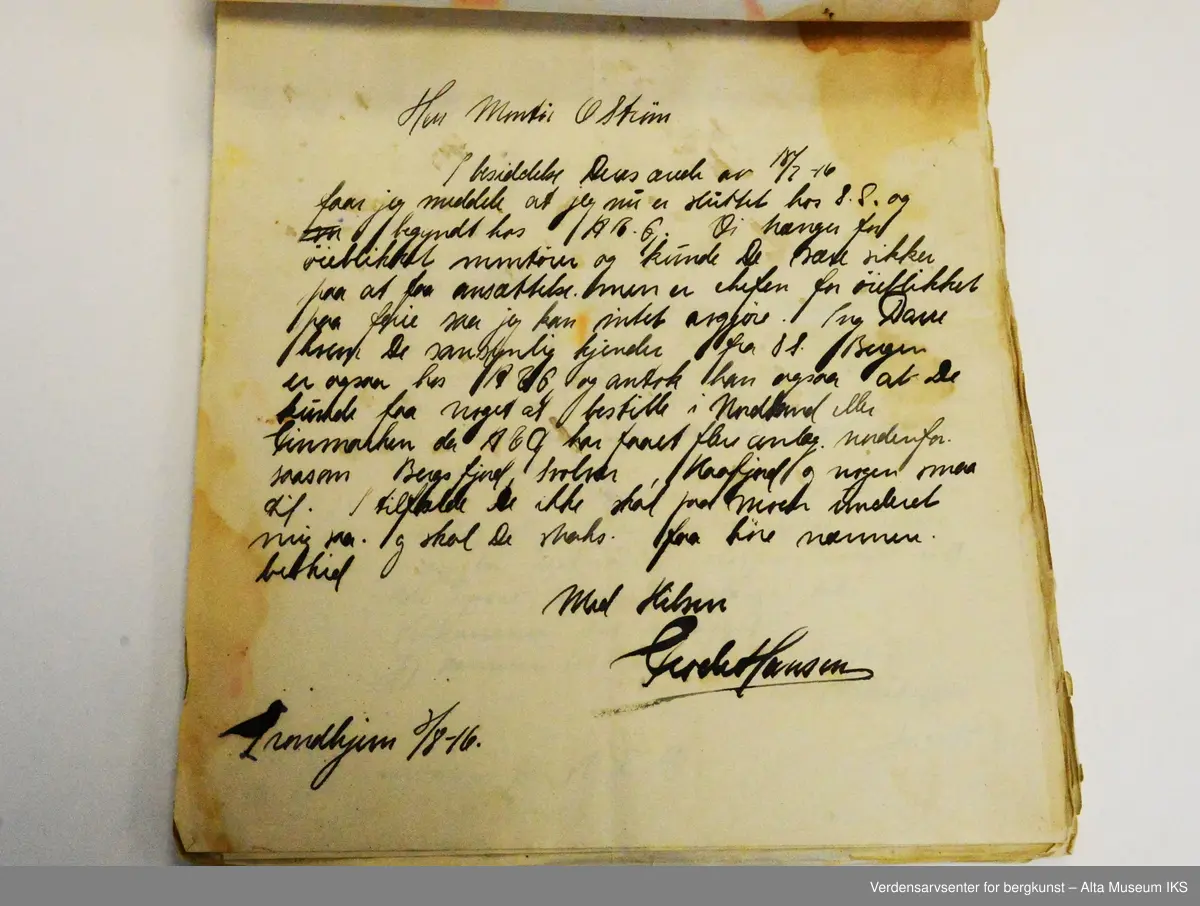 Herr Montör O Ström
I besiddelse Deres ærede av 18/7-16
faar jeg meddele at jeg nu er sluttet hos S.S. og
begyndt hos A.E.G. Vi trænger for
öieblikket montörer og kunde De være sikker
paa at faa ansættelse. men er chefen for öieblikket
paa ferie saa jeg kan intet avgjöre. Ing
hvem De sansynlig kjender fra S S. Bergen
er ogsaa hos A E G, og antok han ogsaa at De
kunde faa noget at bestille i Nordland eller
Finmarken da A E G har faaet flere anlæg. nordenfor.
saasom Bergsfjord, Svolvær, Kaafjord og nogen smaa
til. I tilfælde De ikke skal paa underret
mig saa. og skal De straks. faa höre nærmere.
beskied
Med Hilsen
Hansen
Trondhjem 3/8-16.
Verdensarvsenter for bergkunst – Alta Museum IKS